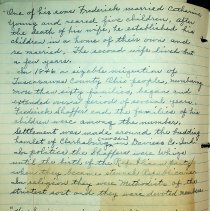 One of his sons Frederick married Catharine
Young and reared five children. After
the death of his wife, he established his
children in a home of theirs own and
re married. The second wife lived but
a few years.
In 1846 a sizable migration of
Tuscarawas County Ohio peoples, numbering
more than sixty families, began and
extended over a period of several years.
Frederick and the families of his
children were among the number.
Settlement was made around the budding
hamlet of Clarksburg, in
In politics the were Whigs
until the birth of the Republican party
when they became staunch Republicans
In religion they were Methodists of the
strictest sort and they were devoted